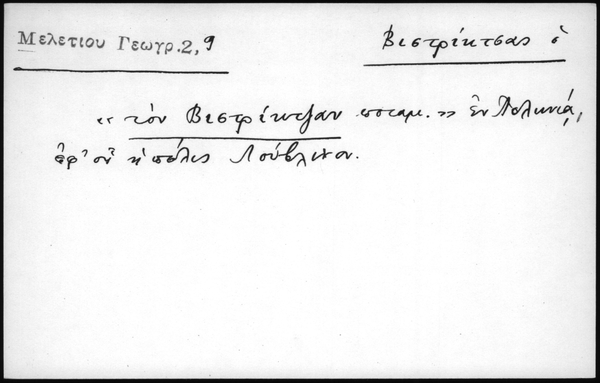 Μελετιου Γεωγρ. 2, 9
Βιστρίκτσας ὁ
« τὸν Βιστρίκτζαν ποταμ. » ἐν Πολωνίᾳ,
ἐφ' οὗ ἡ πόλις Λούβλινον.